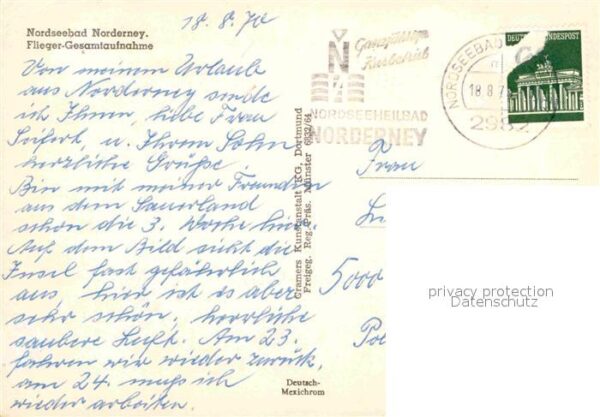 Nordseebad Norderney.
Flieger-Gesamtaufnahme
18.8.70
Von meinem Urlaub
aus Norderney sende
ich Ihnen, liebe Frau
Seifert, u. Ihrem Sohn
herzliche Grüße.
Bin mit meiner Freundin
aus dem Sauerland
schon die 3. Woche hier.
Auf dem Bild sieht die
Insel fast gefährlich
aus, hier ist es aber
sehr schön, herrliche
saubere Luft. Am 23.
fahren wir wieder zurück,
am 24. muß ich
wieder arbeiten.
Cramers Kunstanstalt KG, Dortmund
Freigeg. Reg. Präs. Münster 6933/64
Deutsch-
Mexichrom
Ganzjährig
Kurbetrieb
N
NORDSEEHEILBAD
NORDERNEY
NORDSEEBAD
18.8.7
2982
DEUTSCHE BUNDESPOST
Frau
5000
privacy protection
Datenschutz